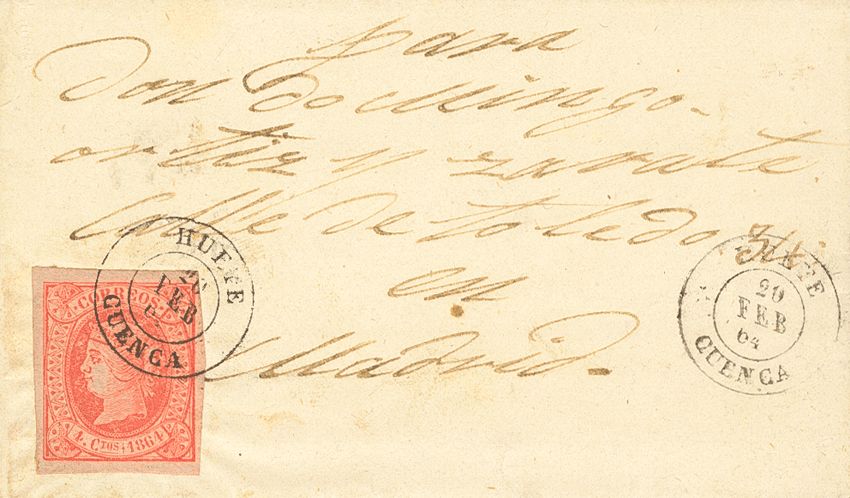 para
Don do Mingo.
ortiz y zarate
Calle de toledo
en
Madrid.
HUETE
20
FEB
CUENCA
CORREOS
4. CTOS. 1864
HUETE
20
FEB
64
CUENCA